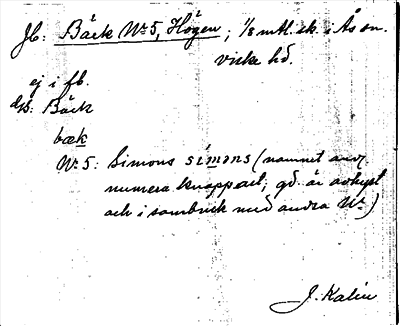 Jb: Bäck Nº 5, Högen; 1/8 mtl. sk. i Ås sn.
Viske hd.
ej i fb.
djb: Bäck
bæk
Nº 5: Simons simons (namnet anv.
numera knappast; gd. är avhyst
och i sambruk med andra Nº)
J. Kalén